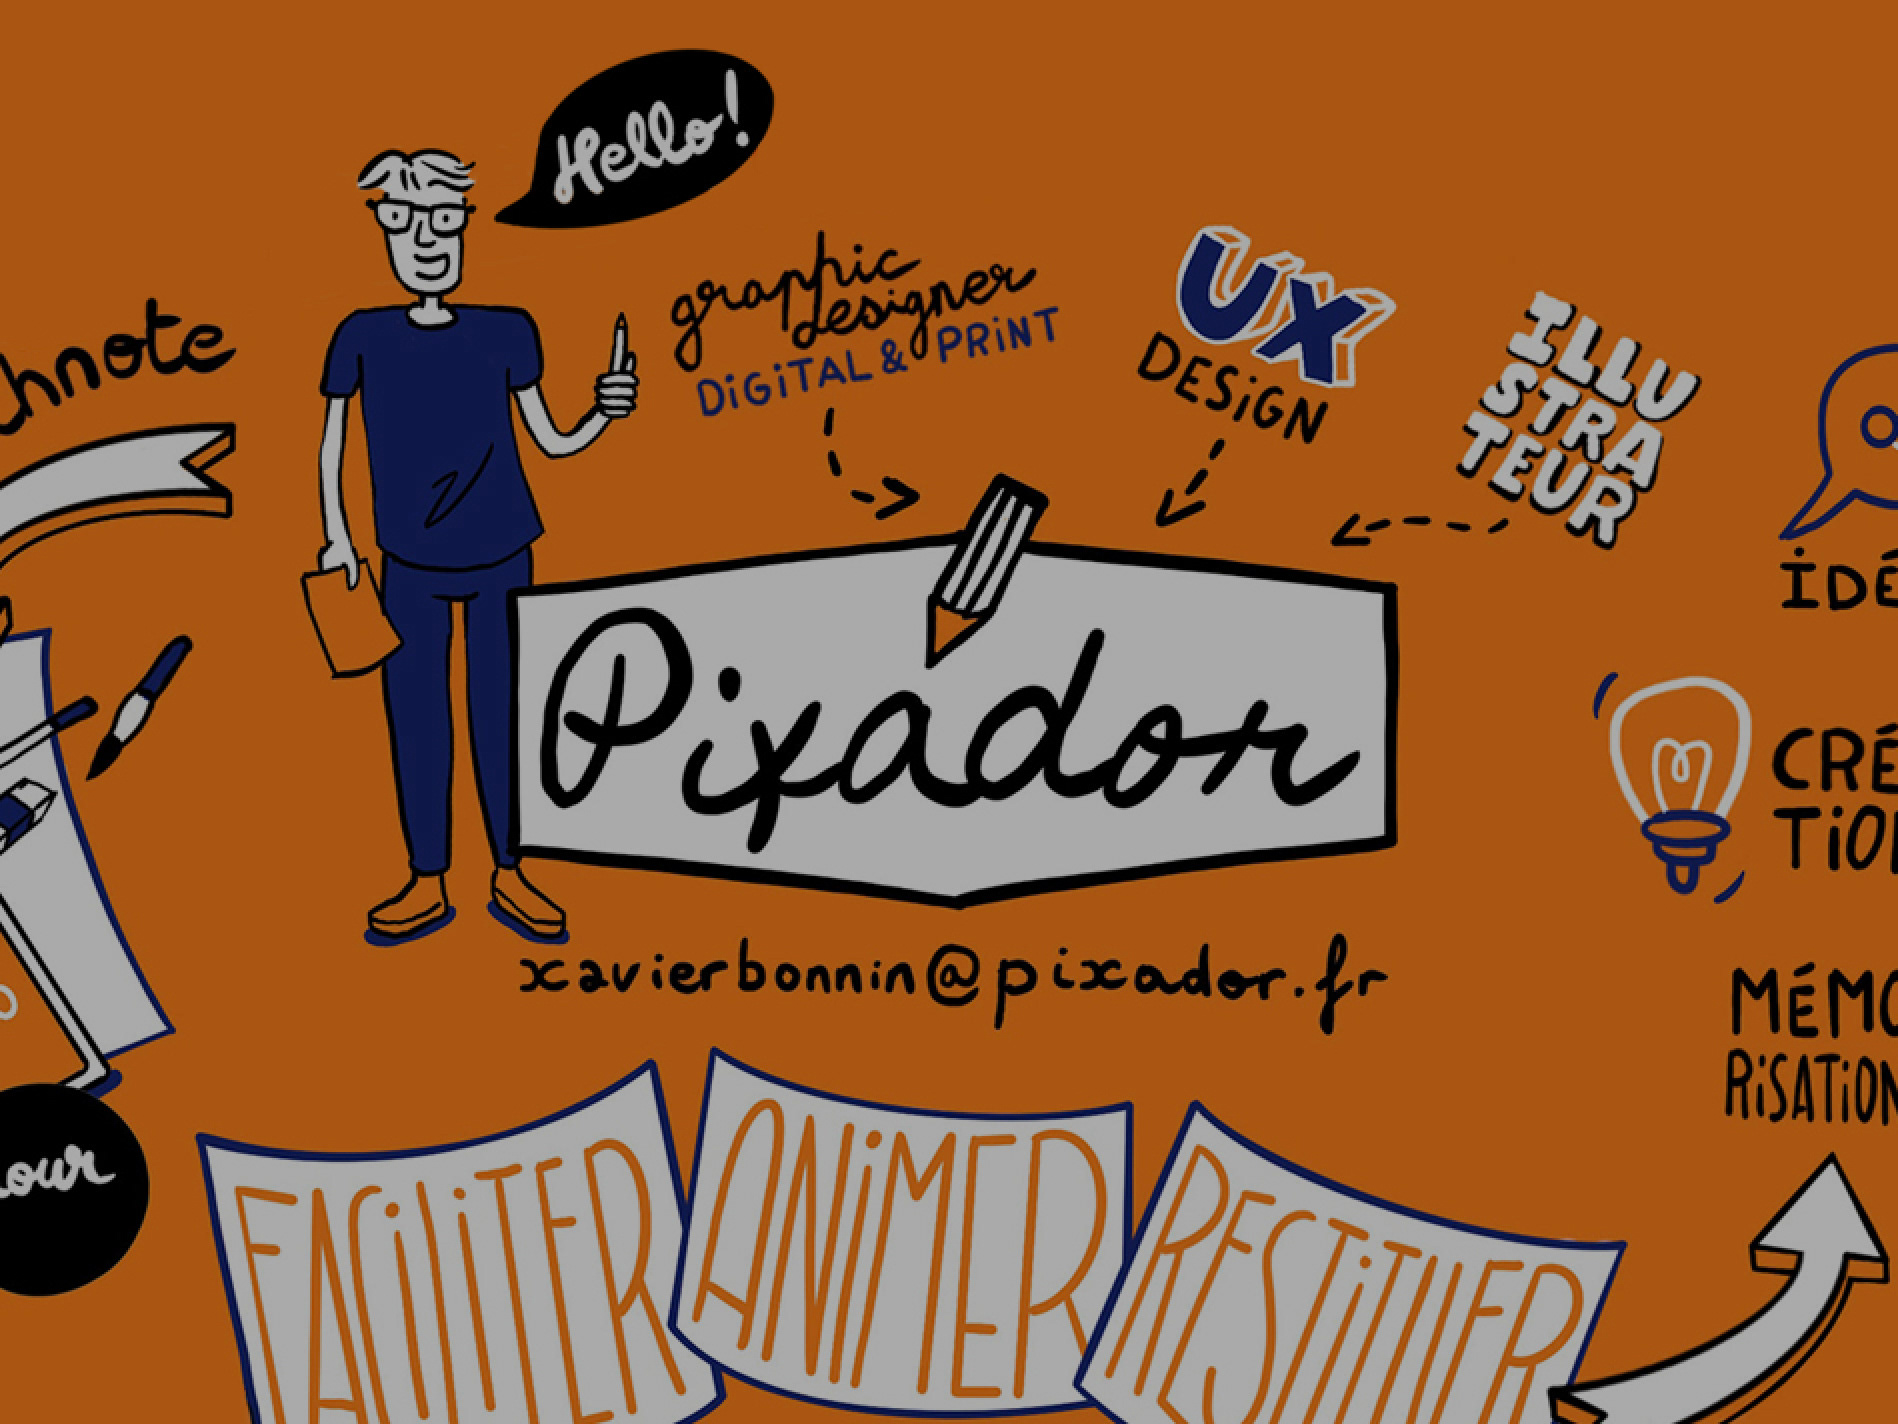 Hello!
graphic
designer
DiGiTAL & PRiNT
UX
DESiGN
ILLU
STRA
TEUR
hnote
iDÉ
Pixador
CRÉ
TiON
xavierbonnin@pixador.fr
MÉMO
RiSATiON
our
FACiLiTER
ANiMER
RESTiTUER